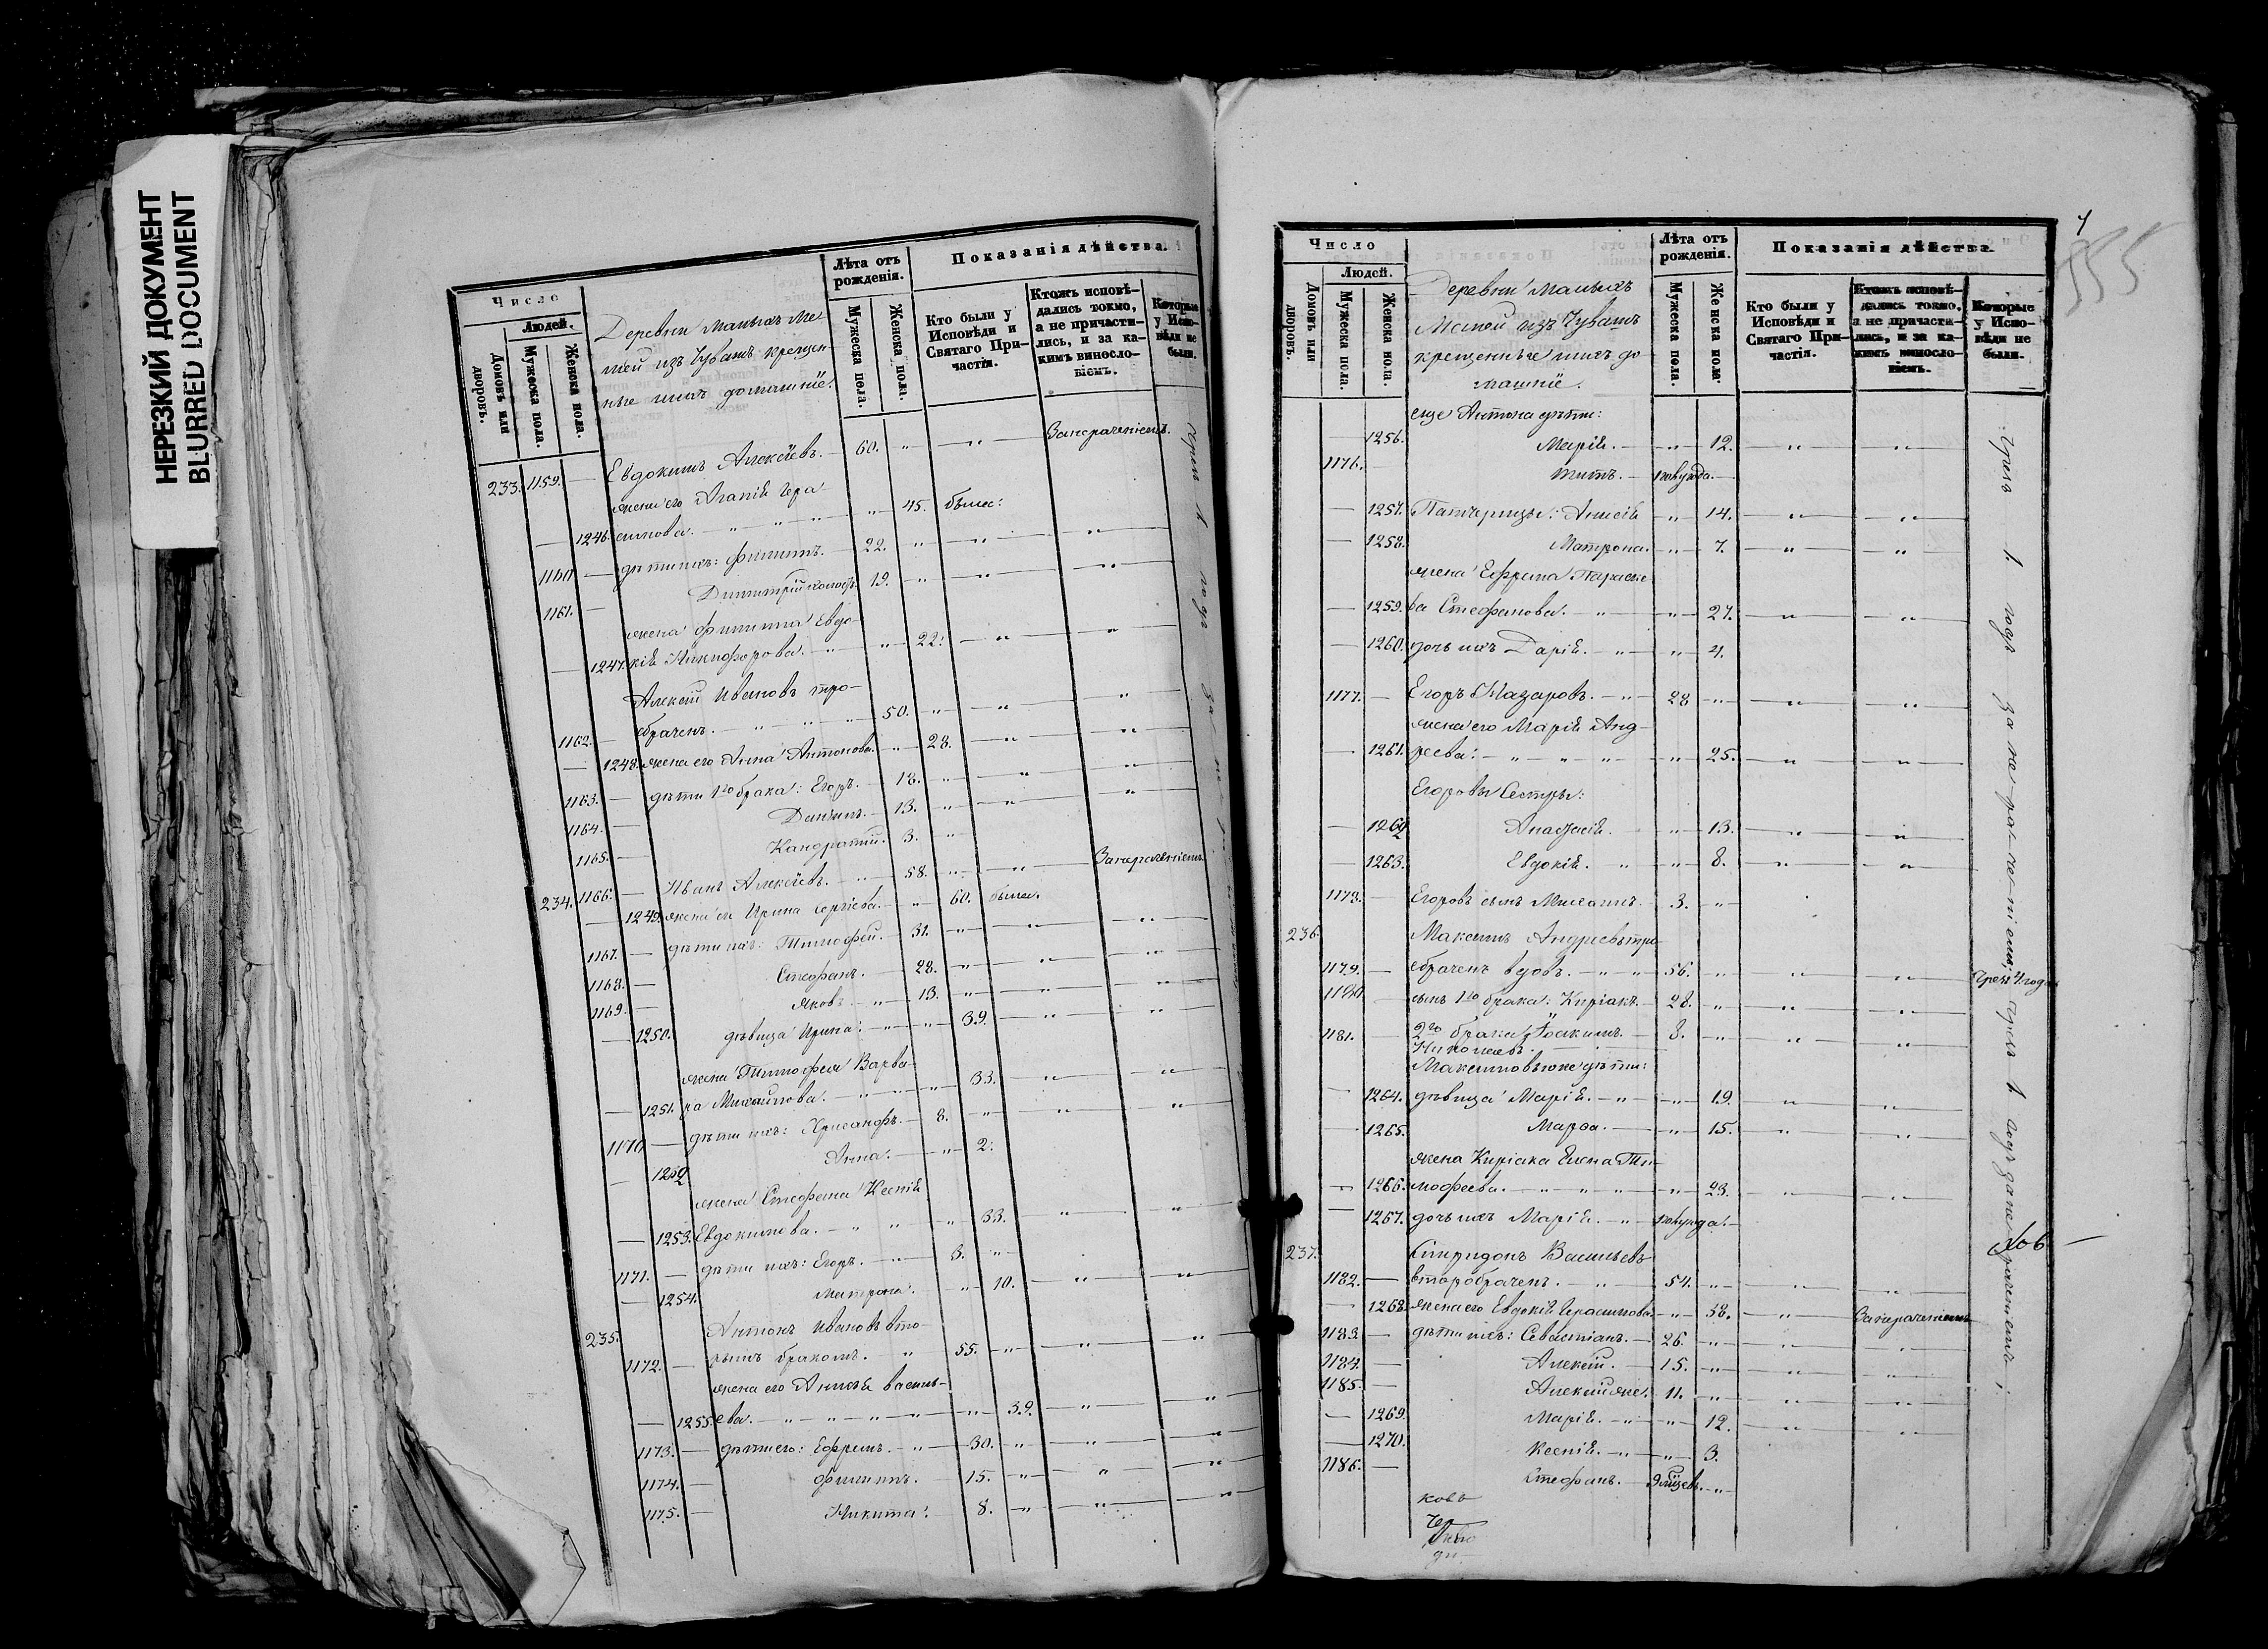 НЕРЕЗКИЙ ДОКУМЕНТ
BLURRED DOCUMENT
Число
Людей.
Домовъ или дворовъ.
Мужеска пола.
Женска пола.
Деревни Малыхъ Ме-
мей изъ Чувашъ крещен-
ные ихъ домашніе.
Лѣта отъ рожденія.
Мужеска пола.
Женска пола.
Показанія дѣйства.
Кто были у Исповѣди и Святаго При-
частія.
Ктожъ исповѣ-
дались токмо,
а не причасти-
лись, и за ка-
кимъ виносло-
віемъ.
Которые
у Испо-
вѣди не
были.
233. 1159. — Евдокимъ Алексѣевъ. — 60. " — " —
жена его Агапія Гера-
— 1246. симова. — " — " — " — 45. были:
1160 — дѣти ихъ: Филиппъ. — 22. " — " — "
1161. — Димитрій 19. " — " — "
жена Филиппа Евдо-
— 1247. кія Никифорова. — " — " — 22. — " — "
Алексѣй Ивановъ тро-
1162. — брачен. — " — " — 50. — " — " — "
— 1248. жена его Анна Антонова. — " — 28. — " — "
1163. — дѣти 1го брака: Егоръ. — 18. — " — " — "
1164. — Даніилъ. — 13. — " — " — "
1165. — Кандратій. 3. — "
234. 1166. — Иванъ Алексѣевъ. — " — 58. — " — " —
— 1249. жена его Ирина Сергіева. — " — 60. были.
1167. — дѣти ихъ: Тимофей. — 31. — " — " — "
1168. — Стефанъ. — 28. — " — " — "
1169. — Яковъ — " — 13. — " — " — "
— 1250. дѣвица Ирина. — " — " — 39. — " — "
жена Тимофея Варва-
— 1251. ра Михайлова. — " — " — 33. — " — "
1170 — дѣти ихъ: Хрисанфъ. — 8. — " — " — "
— 1252 Анна. — " — 2.
жена Стефана Ксенія
— 1253. Евдокимова. — " — " — 33. — " — "
1171. — дѣти ихъ: Егоръ. — " — 3. — "
— 1254. Матрона. — " — 10. — " — "
235. Антонъ Ивановъ вто-
1172. — рымъ бракомъ. — " — 55. — " — " — "
жена его Анисія Василь-
— 1255. ева. — " — " — " — 39. — " — "
1173. — дѣти его: Ефремъ. — " — 30. — " — " — "
1174. — Филиппъ. — 15. — " — " — "
1175. — Никита. — 8. — " — " — "
355
Число
Людей.
Домовъ или дворовъ.
Мужеска пола.
Женска пола.
Деревни Малыхъ
Мемей изъ Чувашъ
крещенные ихъ до-
машніе.
Лѣта отъ рожденія.
Мужеска пола.
Женска пола.
Показанія дѣйства.
Кто были у
Исповѣди и
Святаго При-
частія.
Ктожъ исповѣ-
дались токмо,
а не причасти-
лись, и за ка-
кимъ виносло-
віемъ.
Которые
у Испо-
вѣди не
были.
еще Антона дѣти:
— 1256. Марія. — " — 12. — " — "
1176. Титъ. — полугода. —
— 1257. Падчерицы: Анисія — " — 14. — " — "
— 1258. Матрона. — " — 7. — " — "
жена Ефрема Параске-
— 1259. ва Стефанова. — " — " — 27. — " — "
— 1260. дочь ихъ Дарія. — " — " — 4.
1177. — Егоръ Назаровъ. — " — 28 — " — " — "
жена его Марія Анд-
— 1261. реева. — " — " — " — 25. — " — "
Егоровы Сестры:
— 1262 Анастасія. — " — 13. — " — "
— 1263. Евдокія. — " — " — 8. — " — "
1178. — Егоровъ сынъ Михаилъ. — 3. — "
236. Максимъ Андреевъ тро-
1179. — ебраченъ вдовъ. — " — " — 56. — " — " — "
1180 — сынъ 1го брака: Киріакъ. — 28. — " — " — "
1181. — 2го брака Іоакимъ. — 3. — " — " — "
Максимовы же дѣти:
— 1264. дѣвица Марія. — " — " — 19. — " — "
— 1265. Марѳа. — " — 15. — " — "
жена Киріака Елена Ти-
— 1266. мофеева. — " — " — " — 23. — " — "
— 1267. дочь ихъ Марія. — " — полугода. —
237. Спиридонъ Васильевъ
1182. — второбрачен. — " — 54. — " — " — "
— 1268. жена его Евдокія Герасимова — " — 58. — " —
1183. — дѣти ихъ: Севастіанъ. — 26. — " — " — "
1184. — Алексѣй. — 15. — " — " — "
1185. — Алексѣй же. 11. — " — " — "
— 1269. Марія. — " — " — 12. — " — "
— 1270. Ксенія. — " — " — 3.
1186. — Стефанъ. — — "
ковъ